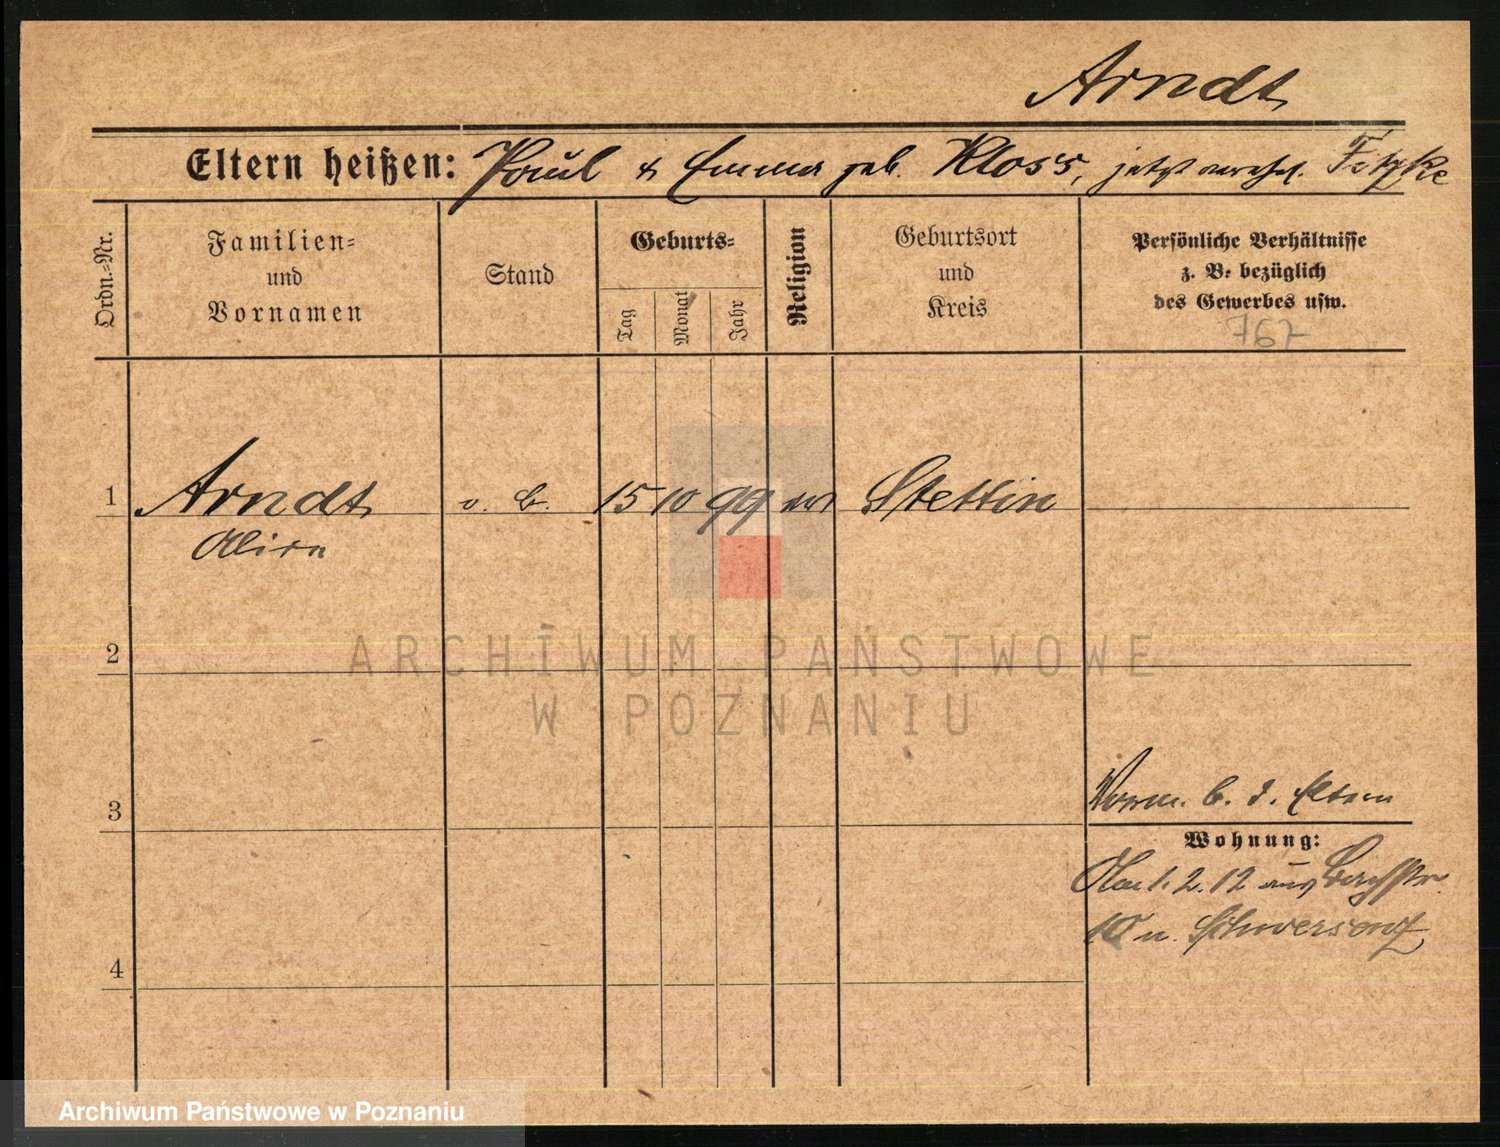 Arndt
Eltern heißen: Paul & Emma geb. Kloss, jetzt vereh. Fetzke
Ordn.-Nr.
Familien-
und
Vornamen
Stand
Geburts-
Tag
Monat
Jahr
Religion
Geburtsort
und
Kreis
Persönliche Verhältnisse
z. B. bezüglich
des Gewerbes usw.
767
1
Arndt
o. B.
15 10 99
Stettin
2
ARCHIWUM PAŃSTWOWE
W POZNANIU
3
b. d. Eltern
Wohnung:
1.2.12 aus
10 n. Schwersenz
4
Archiwum Państwowe w Poznaniu